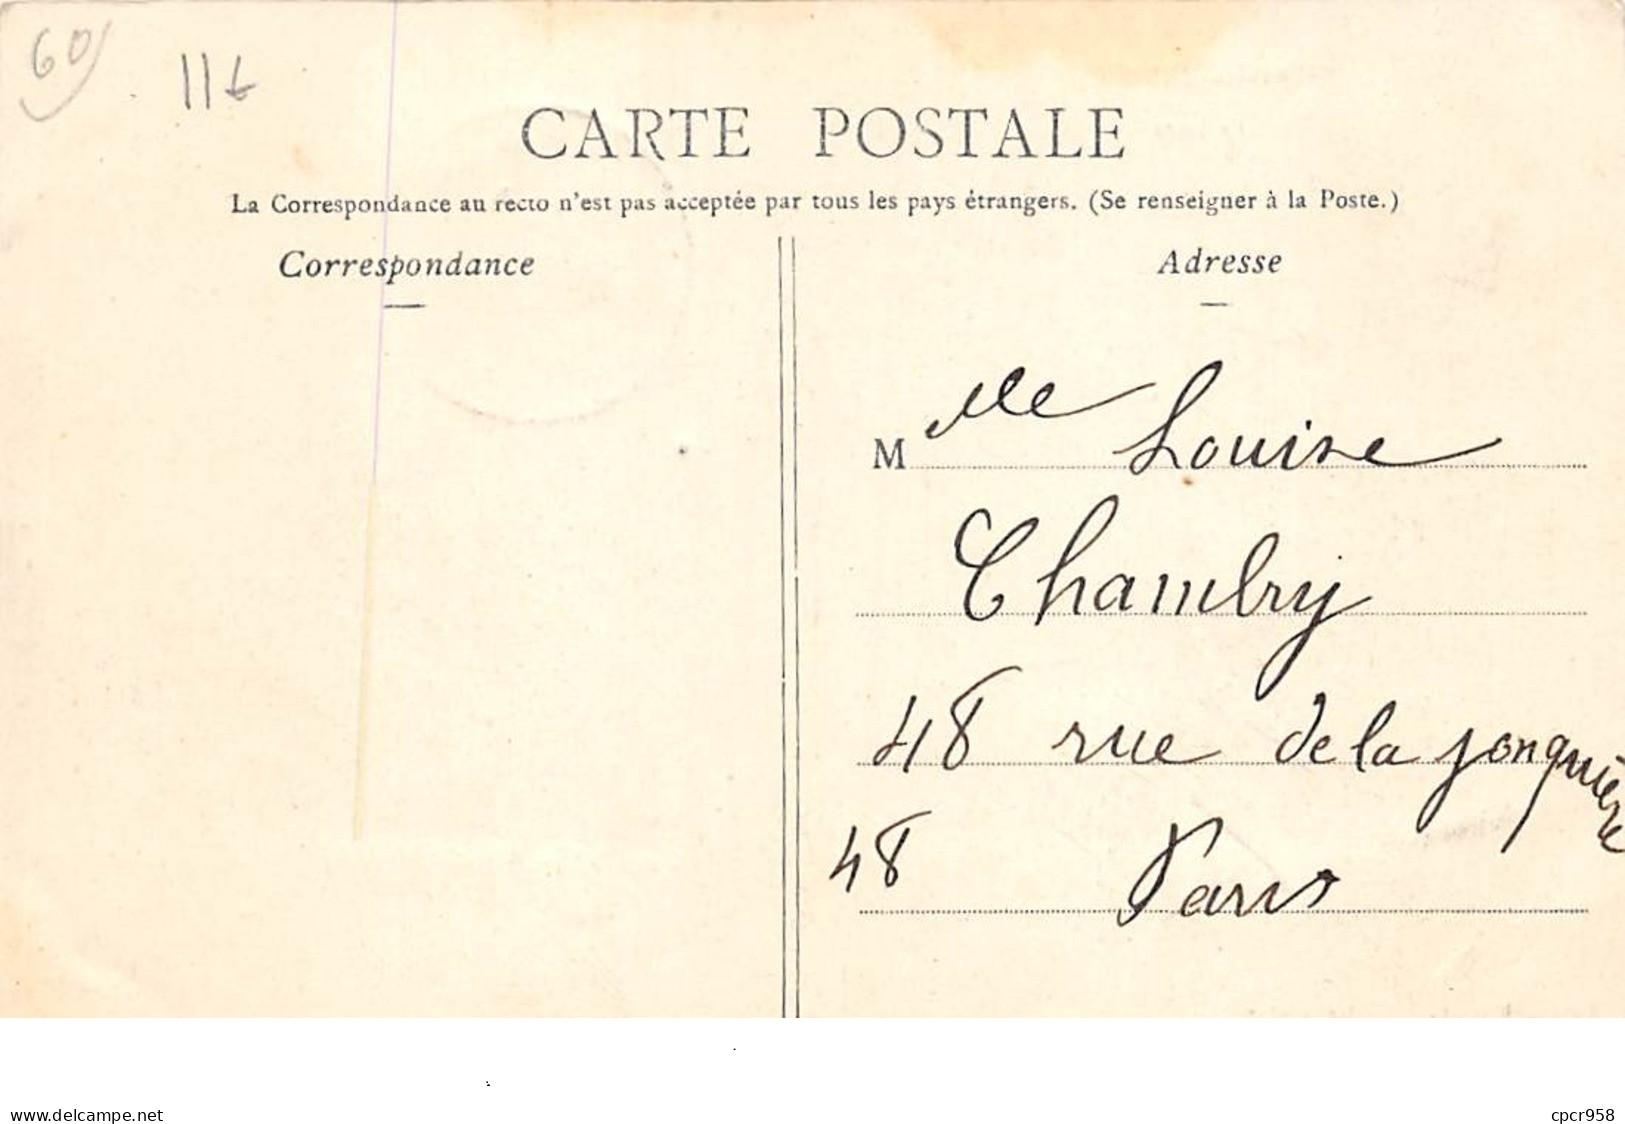 60
11t
CARTE POSTALE
La Correspondance au recto n'est pas acceptée par tous les pays étrangers. (Se renseigner à la Poste.)
Correspondance
Adresse
Mlle Louise
Chambry
48 rue de la Jonquière
48 Paris
www.delcampe.net
cpcr958